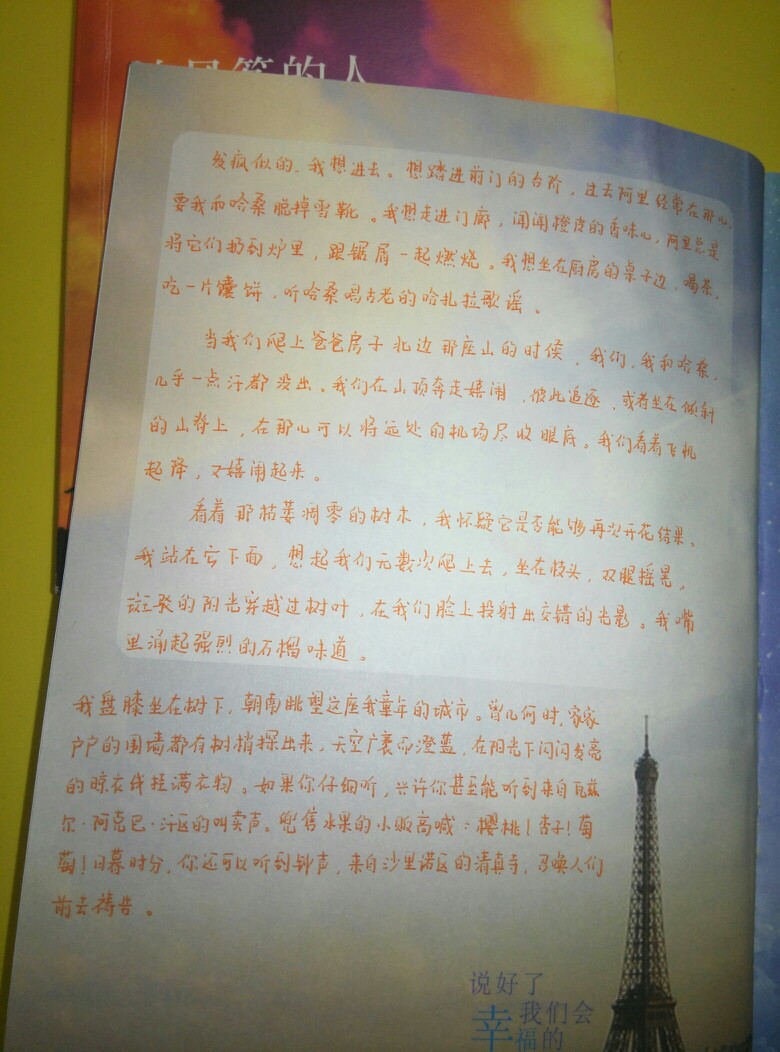 追风筝的人
发疯似的,我想进去。想踏进前门的台阶,过去阿里经常在那儿,
要我和哈桑脱掉雪靴。我想走进门廊,闻闻橙皮的香味儿,阿里总是
将它们扔到炉里,跟锯屑一起燃烧。我想坐在厨房的桌子边,喝茶,
吃一片馕饼,听哈桑唱古老的哈扎拉歌谣。
当我们爬上爸爸房子北边那座山的时候,我们,我和哈桑,
几乎一点汗都没出。我们在山顶奔走嬉闹,彼此追逐,或者坐在倾斜
的山脊上,在那儿可以将远处的机场尽收眼底。我们看着飞机
起降,又嬉闹起来。
看着那枯萎凋零的树木,我怀疑它是否能够再次开花结果。
我站在它下面,想起我们无数次爬上去,坐在枝头,双腿摇晃,
斑驳的阳光穿越过树叶,在我们脸上投射出交错的光影。我嘴
里涌起强烈的石榴味道。
我盘膝坐在树下,朝南眺望这座我童年的城市。曾几何时,家家
户户的围墙都有树梢探出来,天空广袤而澄蓝,在阳光下闪闪发亮
的晾衣线挂满衣物。如果你仔细听,兴许你甚至能听到来自瓦兹
尔·阿克巴·汗区的叫卖声。兜售水果的小贩高喊:樱桃!杏子!葡
萄!日暮时分,你还可以听到钟声,来自沙里诺区的清真寺,召唤人们
前去祷告。
说好了
我们会
幸福的